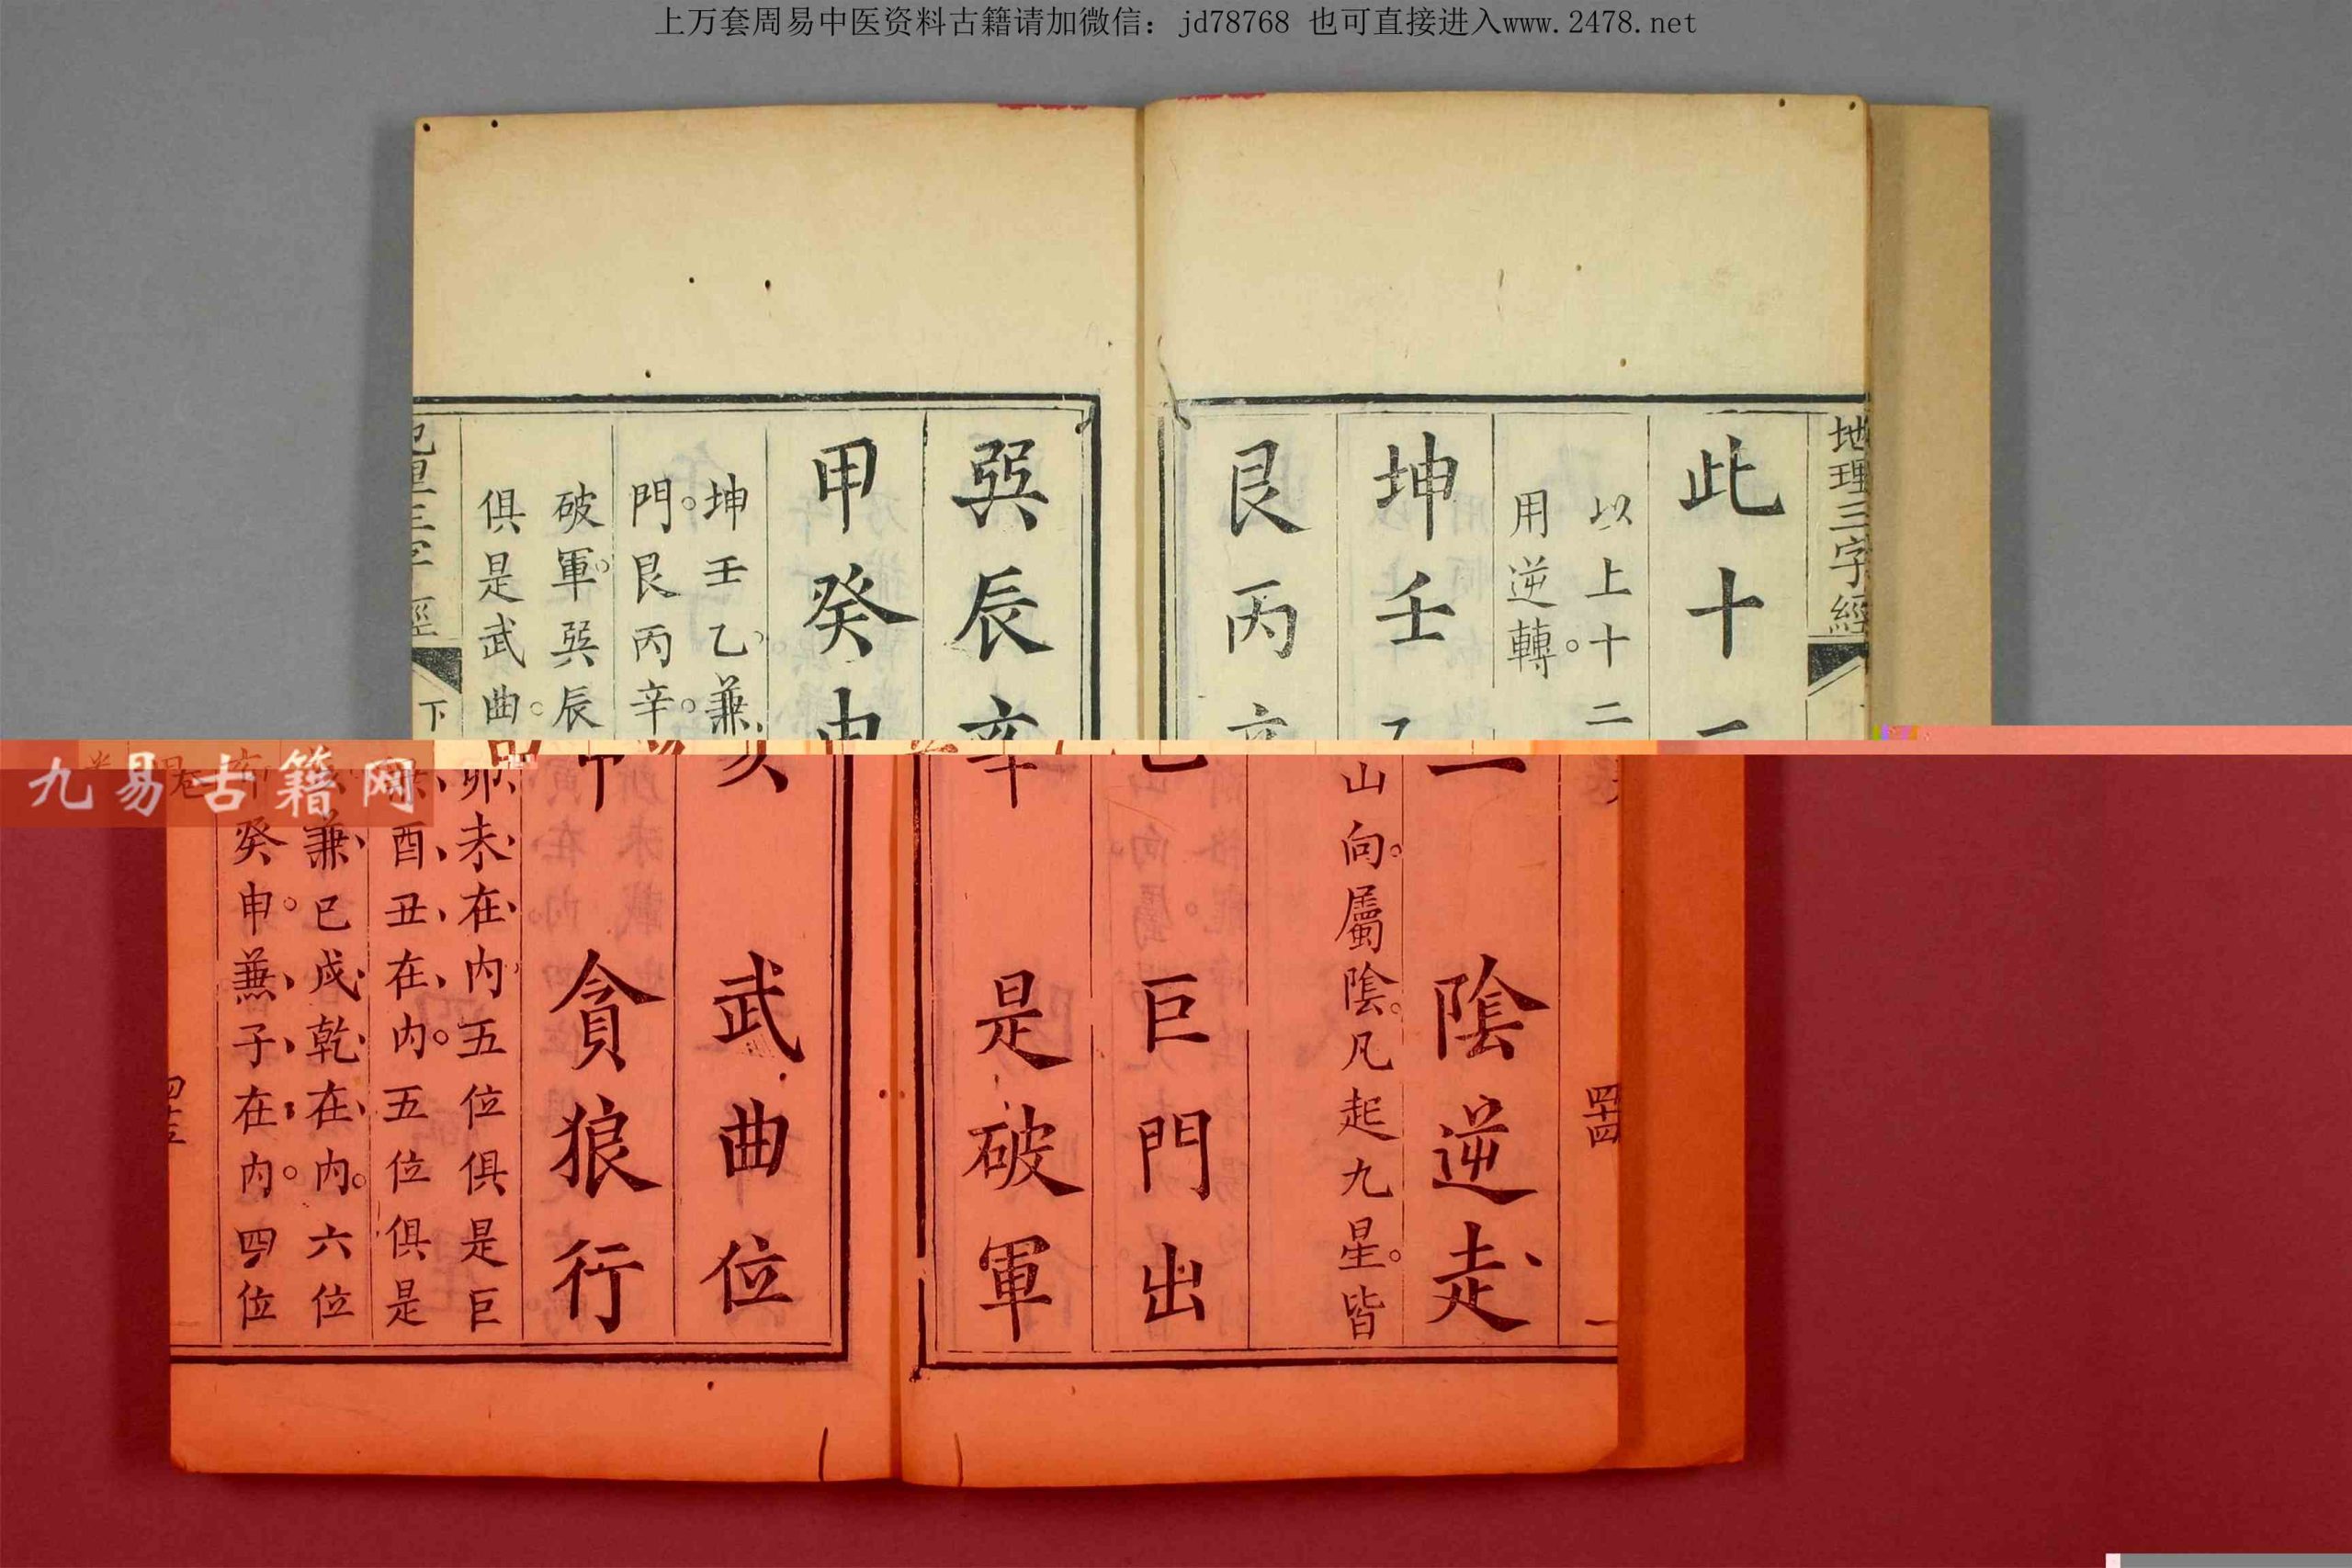 上万套周易中医资料古籍请加微信：jd78768 也可直接进入www.2478.net
地理三字經
四十四
此十二 陰逆走
以上十二山向。屬陰。凡起九星。皆
用逆轉。
坤壬乙 巨門出
艮丙辛 是破軍
巽辰亥 武曲位
甲癸申 貪狼行
坤壬乙、兼、卯、未、在、内五位俱是巨
門。艮丙辛。兼、酉、丑、在、内。五位俱是
破軍。巽辰亥、兼、巳戌、乾、在、内。六位
俱是武曲。甲癸申。兼、子、在、内。四位
下卷
九易古籍网